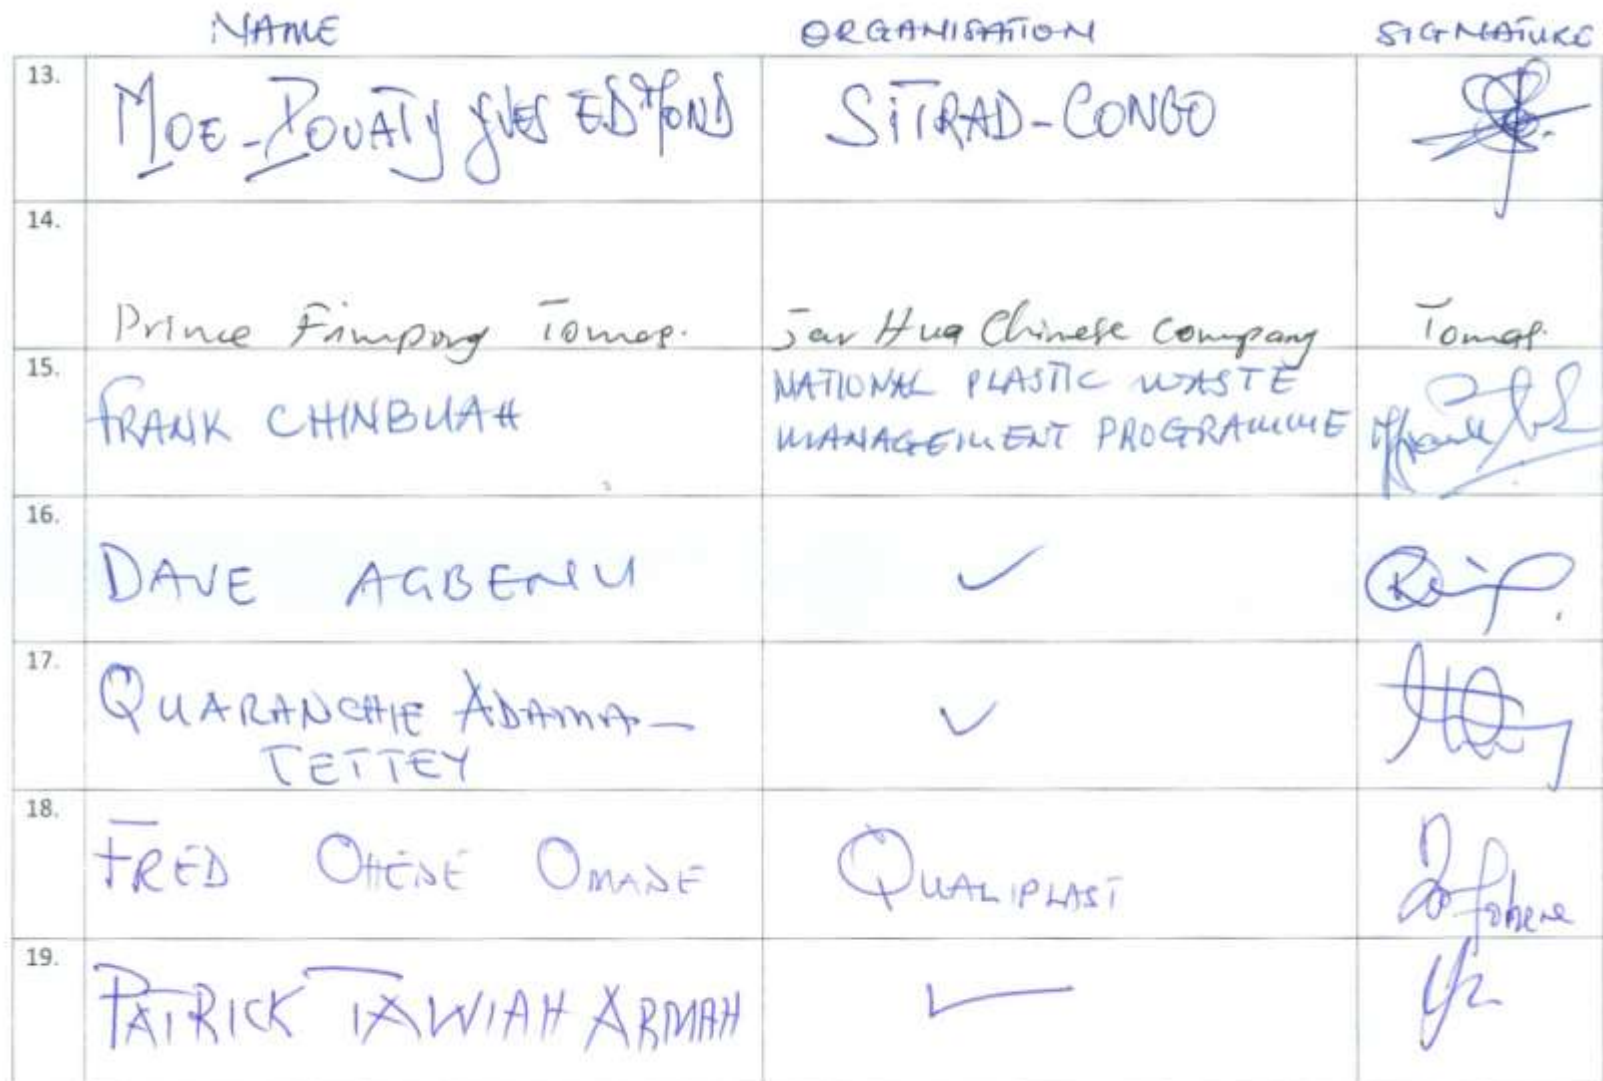 NAME ORGANISATION SIGNATURE
13. MOE-POUATY YVES EDMOND SITRAD-CONGO
14. Prince Frimpong Tomas. Jav Hua Chinese Company Tomas.
15. FRANK CHINBUAH NATIONAL PLASTIC WASTE
MANAGEMENT PROGRAMME
16. DAVE AGBENU ✓
17. QUARANCHIE ADAMA-
TETTEY ✓
18. FRED OHENE OMANE QUALIPLAST
19. PATRICK TAWIAH ARMAH ✓